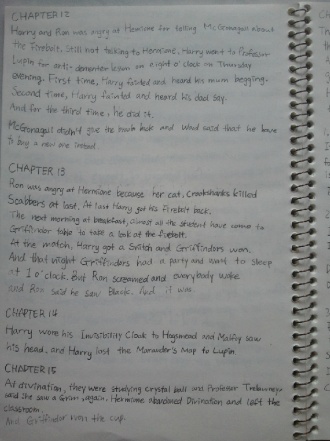 CHAPTER 12
Harry and Ron was angry at Hermione for telling McGonagall about
the Firebolt. Still not talking to Hermione, Harry went to Professor
Lupin for anti-dementor lesson on eight o'clock on Thursday
evening. First time, Harry fainted and heard his mum begging.
Second time, Harry fainted and heard his dad say.
And for the third time, he did it.
McGonagall didn't give the back and Wood said that he have
to buy a new one instead.
CHAPTER 13
Ron was angry at Hermione because her cat, Crookshanks killed
Scabbers at last. At last Harry got his Firebolt back.
The next morning at breakfast, almost all the student have come to
Griffindor table to take a look at the firebolt.
At the match, Harry got a Snitch and Griffindors won.
And that night Griffindors had a party and went to sleep
at 1 o'clock. But Ron screamed and everybody wake
and Ron said he saw Black. And it was.
CHAPTER 14
Harry wore his Invisibility Cloak to Hogsmead and Malfoy saw
his head, and Harry lost the Marauder's Map to Lupin.
CHAPTER 15
At divination, they were studying crystal ball and Professor Trelawney
said she saw a Grim, again. Hermione abandoned Divination and left the
classroom.
And Griffindor won the cup.